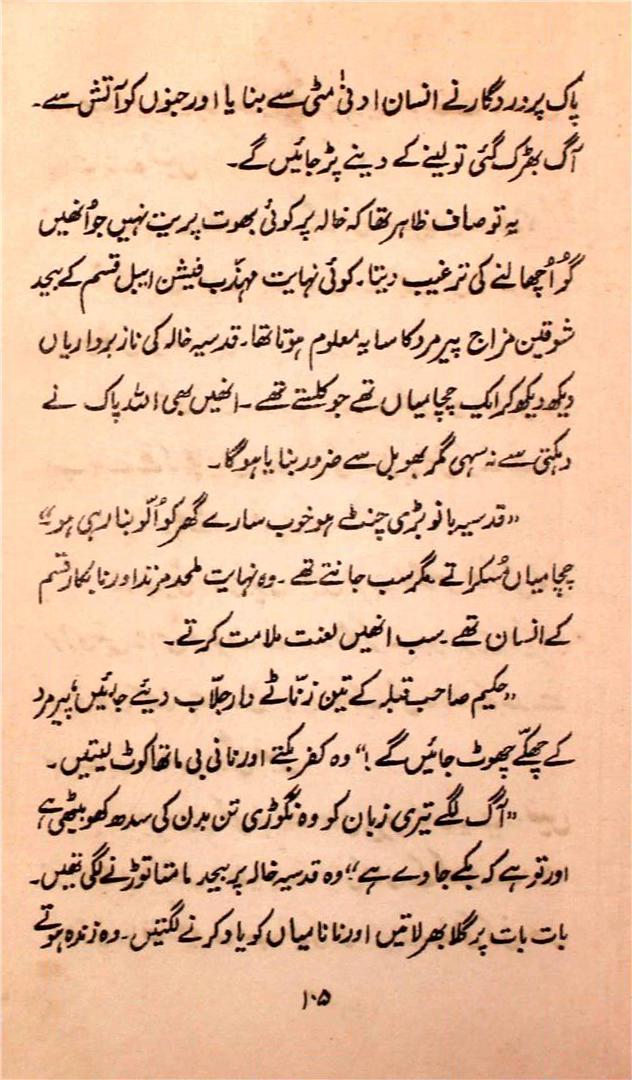 پاک پروردگار نے انسان ادنیٰ مٹی سے بنایا اور جنوں کو آتش سے۔
آگ بھڑک گئی تو لینے کے دینے پڑ جائیں گے۔
یہ تو صاف ظاہر تھا کہ خالہ پر کوئی بھوت پریت نہیں جو اُنھیں
گو اُچھالنے کی ترغیب دیتا۔ کوئی نہایت مہذّب فیشن ایبل قسم کے بیحد
شوقین مزاج پیر مرد کا سایہ معلوم ہوتا تھا۔ قدسیہ خالہ کی ناز برداریاں
دیکھ دیکھ کر ایک چچا میاں تھے جو کلستے تھے۔ انھیں بھی اللہ پاک نے
دہکتی سے نہ سہی مگر بھوبل سے ضرور بنایا ہوگا۔
”قدسیہ بانو بڑی چنٹ ہو خوب سارے گھر کو اُلّو بنا رہی ہو“
چچا میاں مُسکراتے مگر سب جانتے تھے۔ وہ نہایت ملحد مرتد اور نابکار قسم
کے انسان تھے۔ سب انھیں لعنت ملامت کرتے۔
”حکیم صاحب قبلہ کے تین زنّاٹے دار جلّاب دیئے جائیں، پیر مرد
کے چھکّے چھوٹ جائیں گے!“ وہ کفر بکتے اور نانی بی ماتھا کوٹ لیتیں۔
”آگ لگے تیری زبان کو وہ نگوڑی تن بدن کی سدھ کھو بیٹھی ہے
اور تو ہے کہ بکے جاوے ہے“ وہ قدسیہ خالہ پر بیحد مامتا توڑنے لگی تھیں۔
بات بات پر گلا بھر لاتیں اور نانا میاں کو یاد کرنے لگتیں۔ وہ زندہ ہوتے
۱۰۵